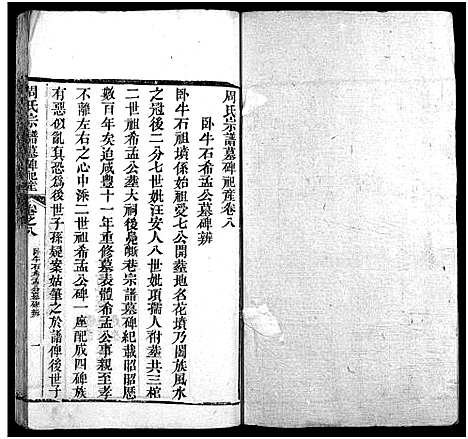 周氏宗譜墓碑祀產卷八
臥牛石希孟公墓碑辨
臥牛石祖墳係始祖愛七公開塟地名花墳乃闔族風水
之冠後二分七世妣汪安人八世妣項孺人附塟共三棺
二世祖希孟公塟大祠後鳧巷宗譜墓碑紀載昭昭歷
數百年矣迨咸豐十一年重修墓表體希孟公至孝
不離左右之心中添二世祖希孟公碑一座配成四碑族
有惡似亂真恐為後世子孫疑案姑筆之於譜俾後世子
周氏宗譜墓碑祀產
卷之八
臥牛石希孟公墓碑辨
一